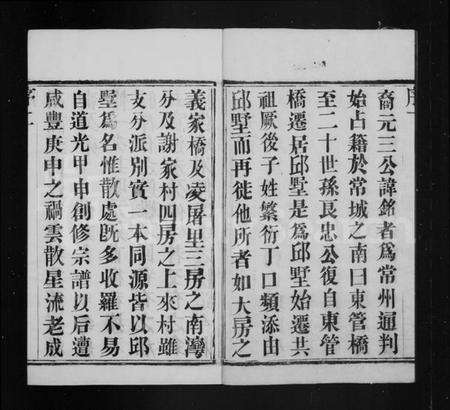 裔元三公諱銘者爲常州通判
始占籍於常城之南曰東管橋
至二十世孫良忠公復自東管
橋遷居邱墅是爲邱墅始遷共
祖厥後子姓繁衍丁口頻添由
邱墅而再徙他所者如大房之
義家橋及凌屏里三房之南灣
分及謝家村四房之上來村雖
支分派別實一本同源皆以邱
墅爲名惟散處旣多收羅不易
自道光甲申創修宗譜以后遭
咸豐庚申之禍雲散星流老成